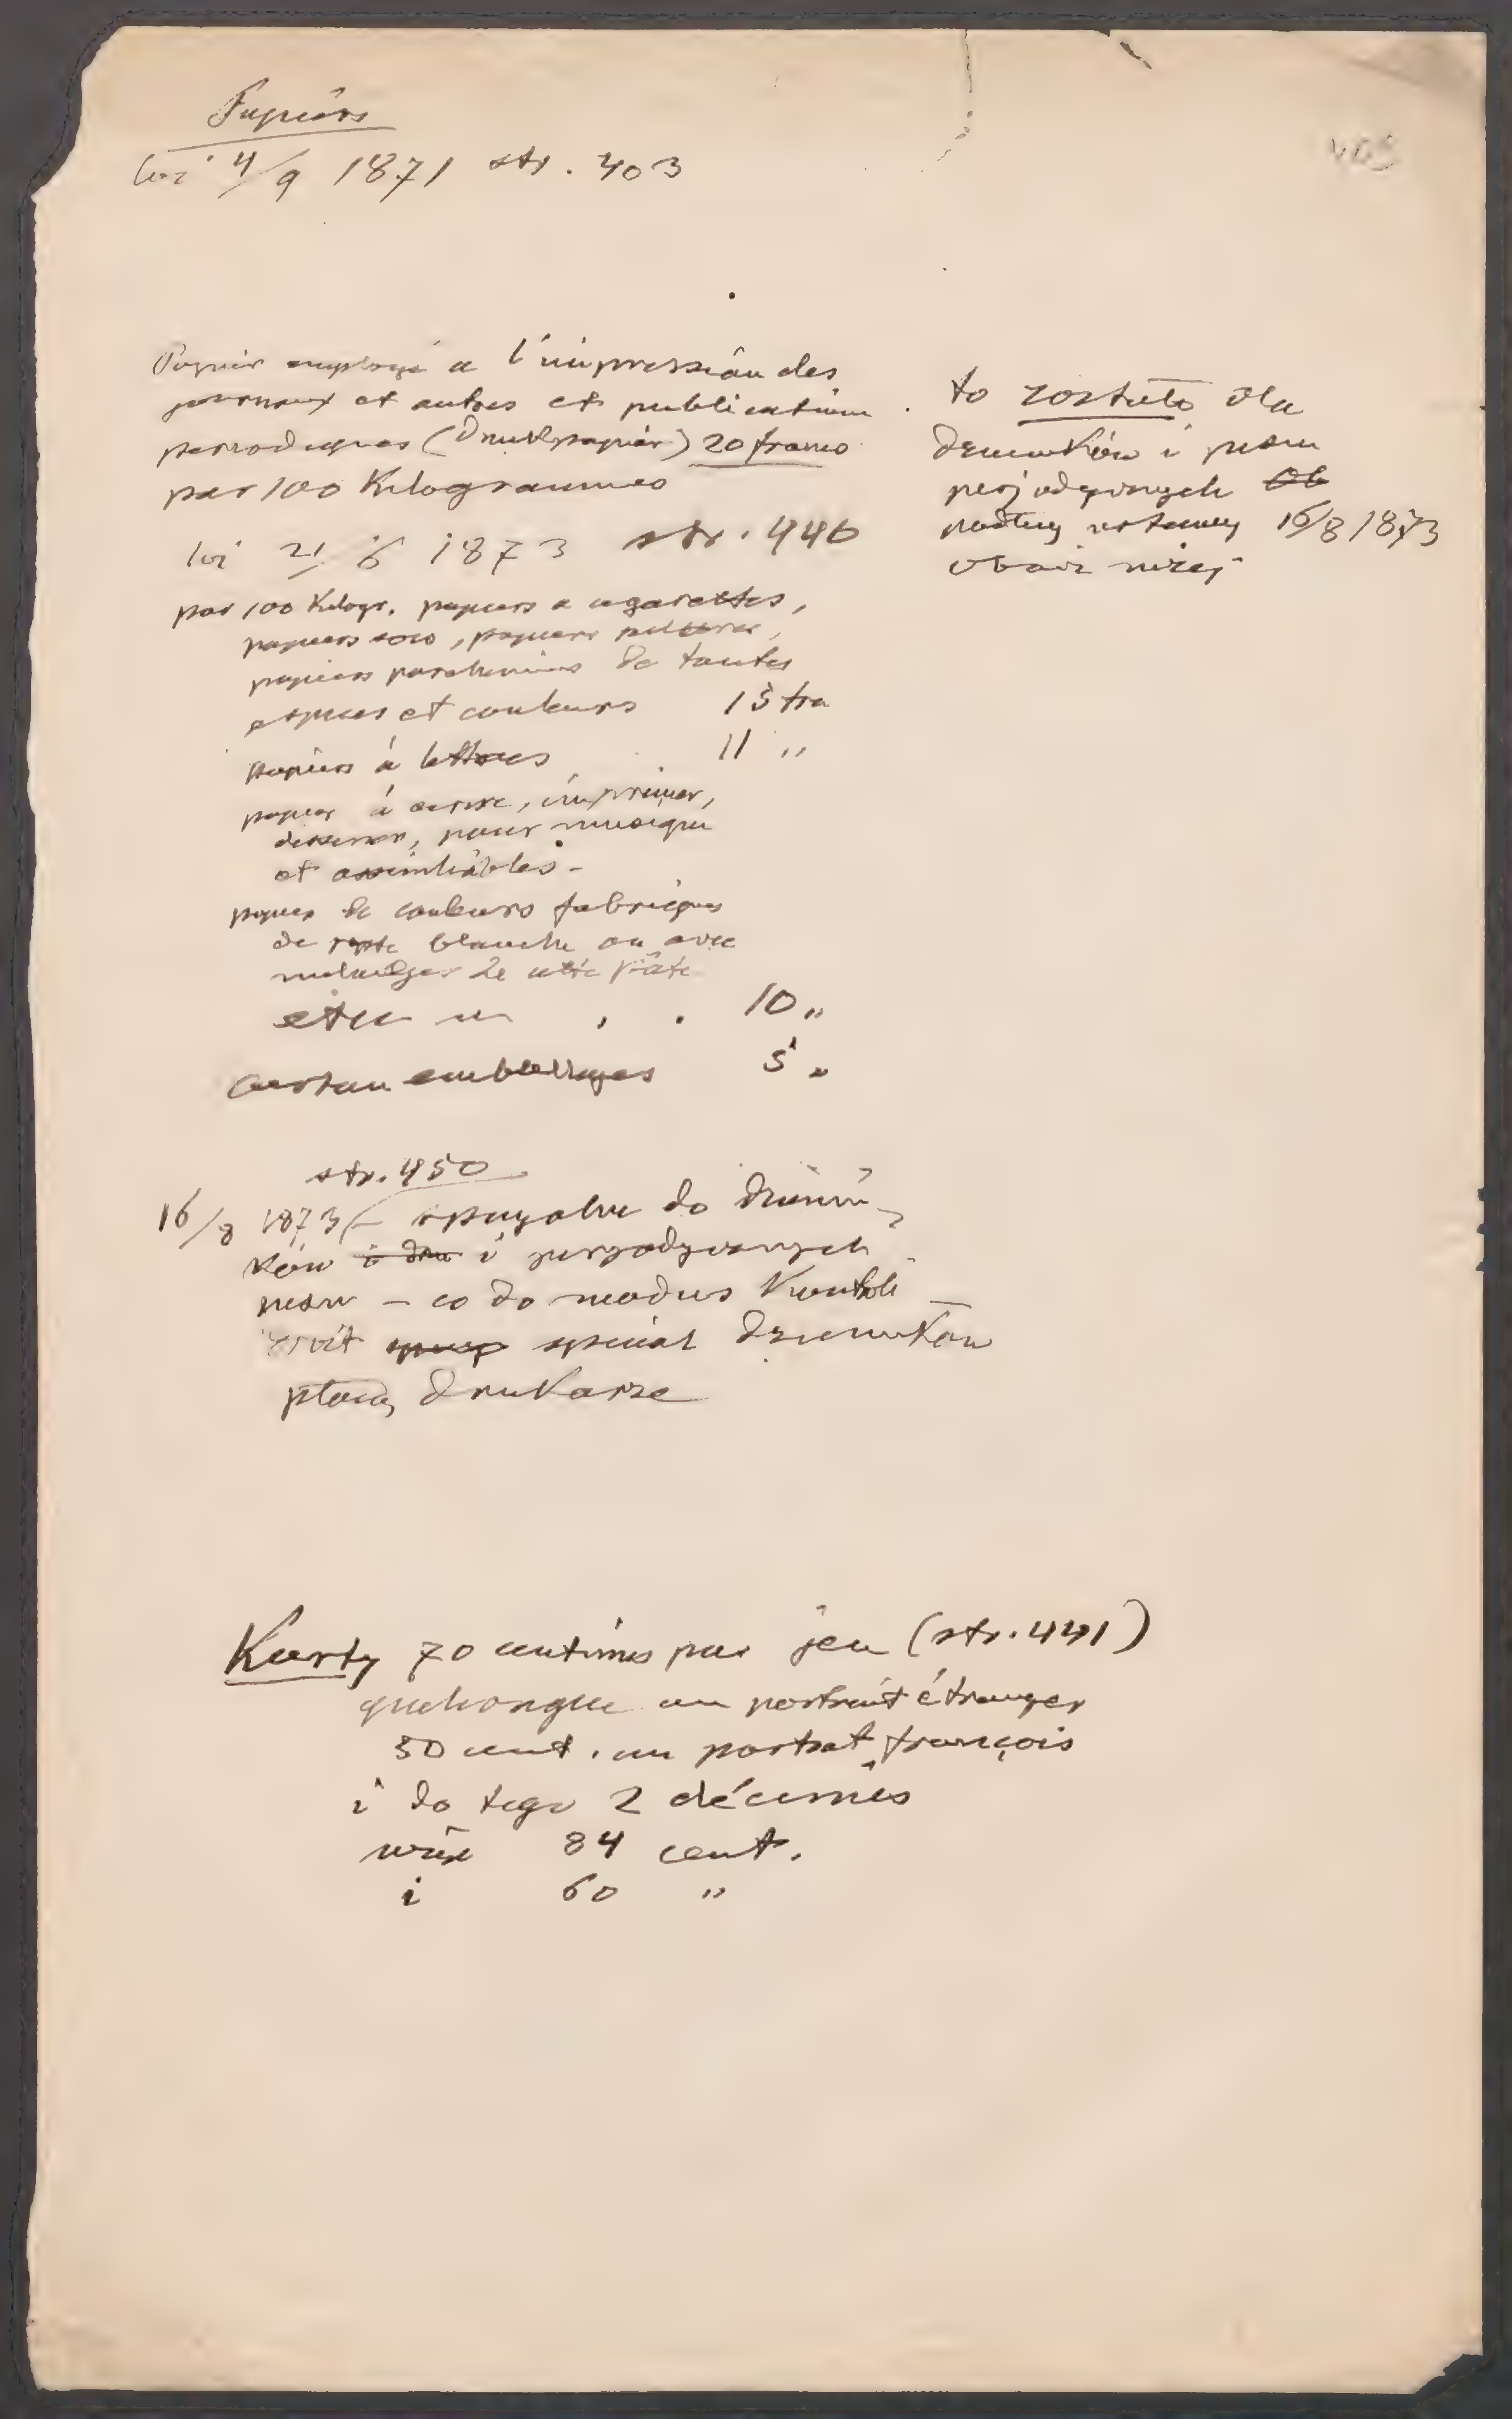 Papiers
loi 4/9 1871 str. 403
Papier employé a l'impression des
journaux et autres et publication
periodiques (Druckpapier) 20 francs
par 100 Kilogrammes
to zostało dla
dzienników i pism
perjodycznych Ob
podług ustawy 16/8 1873
obacz niżej
loi 21/6 1873 str. 440
par 100 Kilogr. papiers a cigarettes,
papiers soie, papiers pelures,
papiers parchemins de toutes
especes et couleurs 15 fra
papiers à lettres 11 "
papier à ecrire, imprimer,
dessiner, pour musique
et assimilables -
papier de couleurs fabriques
de pate blanche ou avec
melanges de cette pâte
etc 10 "
carton emballages 5 "
str. 450
16/8 1873 - specyalne do dzienni-
ków i dru i perjodycznych
pism - co do modus Kontroli
droit special dzienników
płacą drukarze
Karty 70 centimes par jeu (str. 441)
quelconque au portrait étranger
50 cent. au portrait françois
i do tego 2 décimes
więc 84 cent.
i 60 "